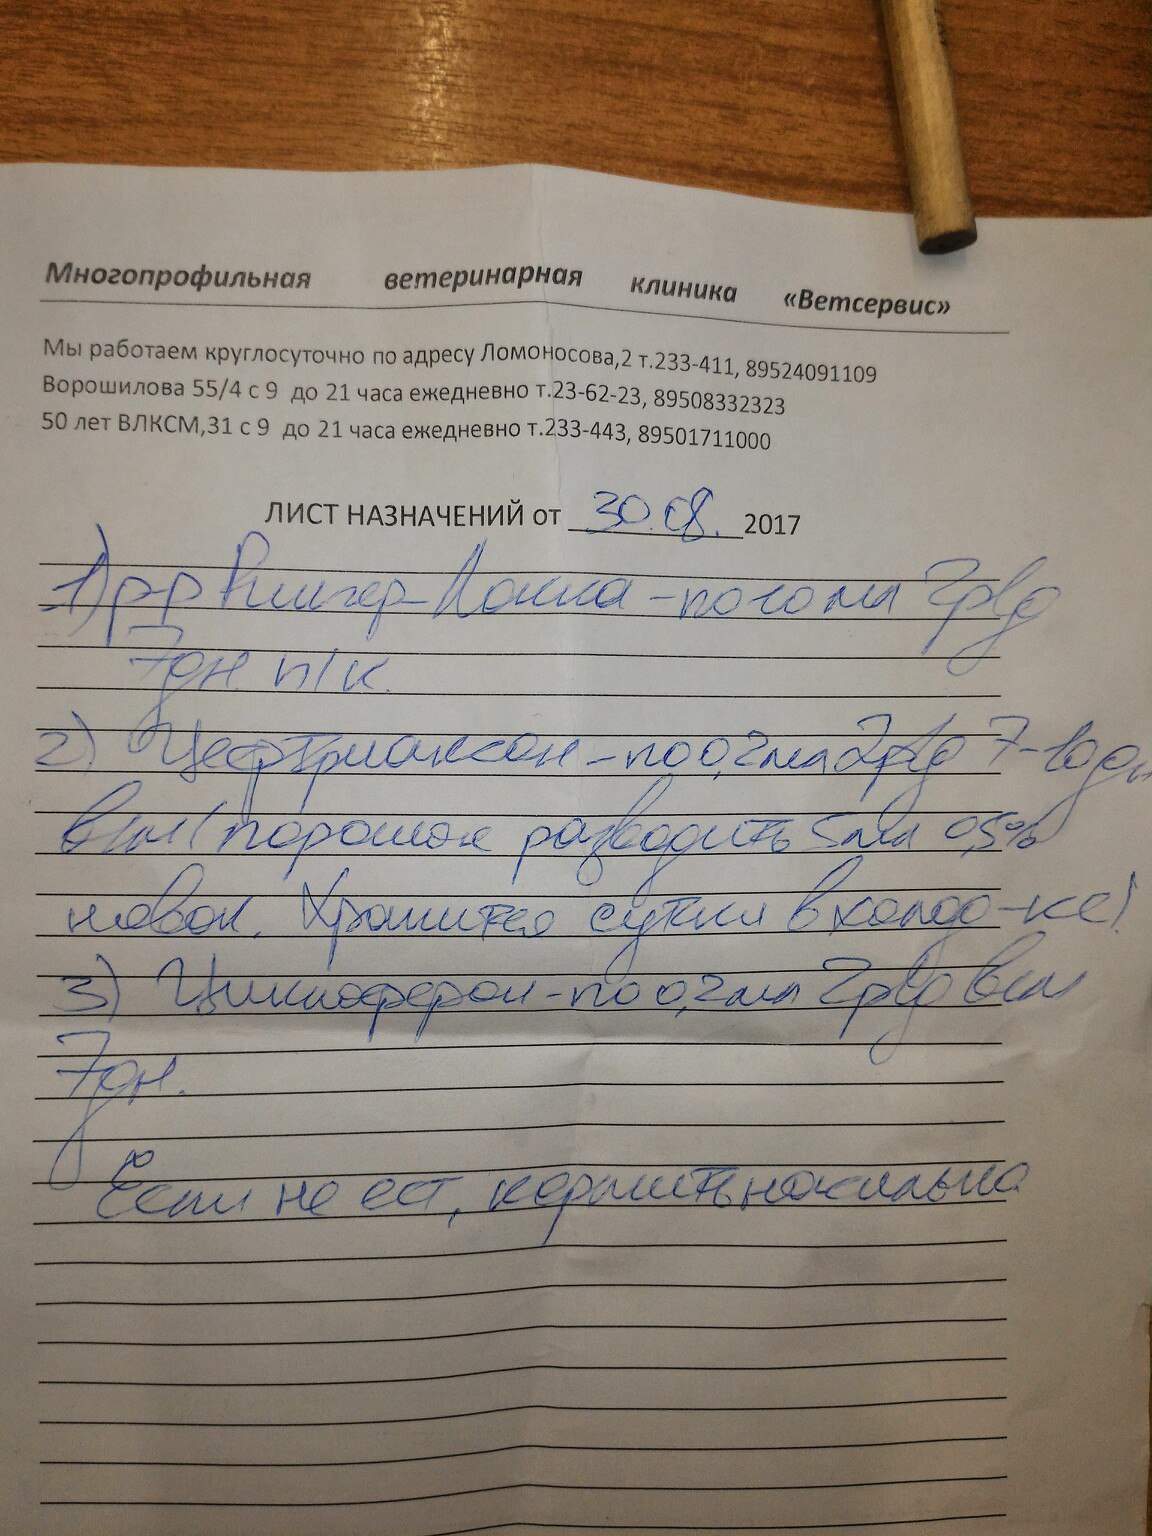 Многопрофильная ветеринарная клиника «Ветсервис»
Мы работаем круглосуточно по адресу Ломоносова,2 т.233-411, 89524091109
Ворошилова 55/4 с 9 до 21 часа ежедневно т.23-62-23, 89508332323
50 лет ВЛКСМ,31 с 9 до 21 часа ежедневно т.233-443, 89501711000
ЛИСТ НАЗНАЧЕНИЙ от 30.08. 2017
1) р-р Рингер-Локка - по 10 мл 2р/д
7дн. п/к.
2) Цефтриаксон - по 0,2мл 2р/д 7-10дн
в/м (порошок разводить 5мл 0,5%
новок. Хранится сутки в холод-ке!
3) Циклоферон - по 0,2мл 2р/д в/м
7дн.
Если не ест, кормить насильно